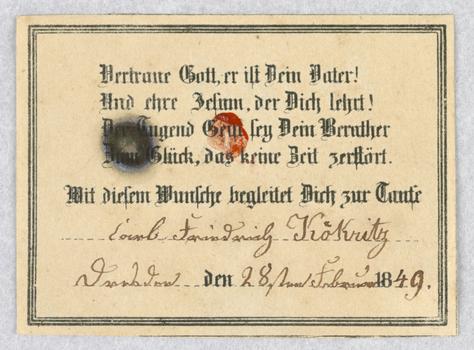 Vertraue Gott, er ist Dein Vater!
Und ehre Jesum, der Dich lehrt!
Der Tugend Geist sey Dein Berather
Dein Glück, das keine Zeit zerstört.
Mit diesem Wunsche begleitet Dich zur Taufe
Carl Friedrich Kökritz
Dresden den 28sten Februar 1849.